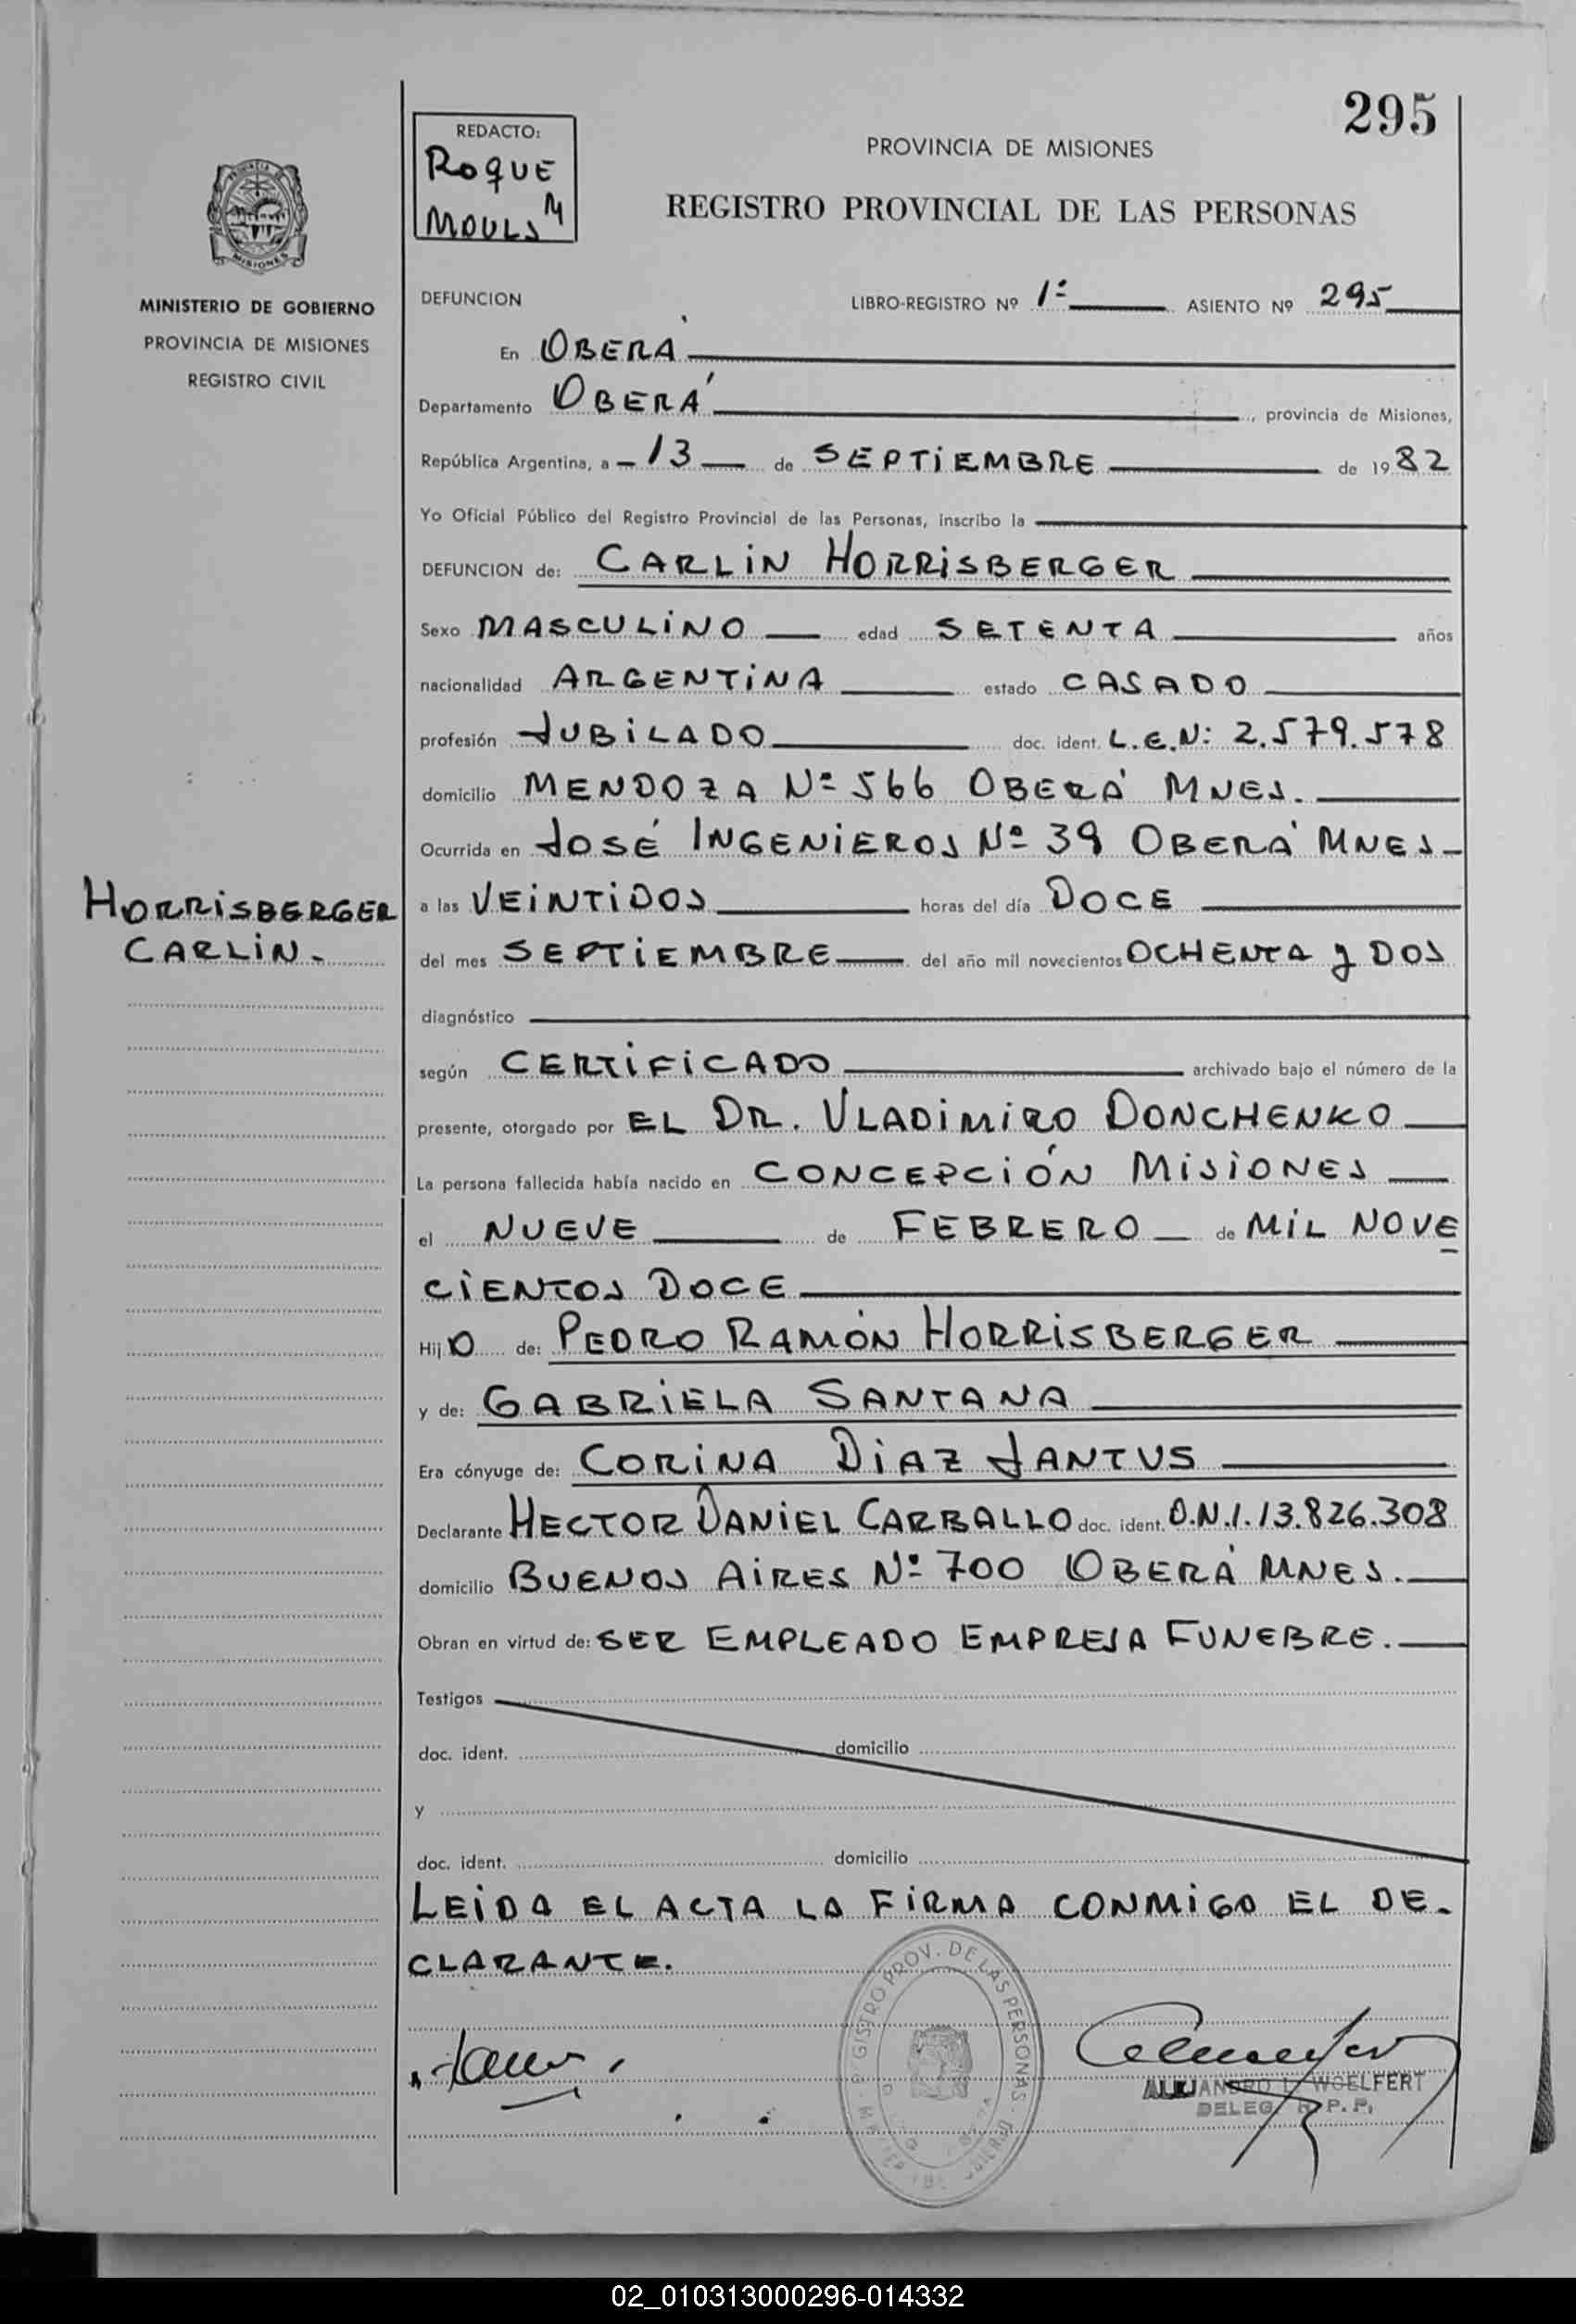 295
REDACTO:
ROQUE
MOULS M
PROVINCIA DE MISIONES
REGISTRO PROVINCIAL DE LAS PERSONAS
MISIONES
MINISTERIO DE GOBIERNO
PROVINCIA DE MISIONES
REGISTRO CIVIL
DEFUNCION LIBRO-REGISTRO Nº 1º ASIENTO Nº 295
En OBERÁ
Departamento OBERÁ, provincia de Misiones,
República Argentina, a 13 de SEPTIEMBRE de 1982
Yo Oficial Público del Registro Provincial de las Personas, inscribo la
DEFUNCION de: CARLIN HORRISBERGER
Sexo MASCULINO edad SETENTA años
nacionalidad ARGENTINA estado CASADO
profesión JUBILADO doc. ident. L.E.N: 2.579.578
domicilio MENDOZA Nº 566 OBERÁ MNES.
Ocurrida en JOSÉ INGENIEROS Nº 39 OBERÁ MNES-
HORRISBERGER
CARLIN.-
a las VEINTIDOS horas del día DOCE
del mes SEPTIEMBRE del año mil novecientos OCHENTA y DOS
diagnóstico
según CERTIFICADO archivado bajo el número de la
presente, otorgado por EL DR. VLADIMIRO DONCHENKO
La persona fallecida había nacido en CONCEPCIÓN MISIONES
el NUEVE de FEBRERO de MIL NOVE
CIENTOS DOCE
Hij O de: PEDRO RAMÓN HORRISBERGER
y de: GABRIELA SANTANA
Era cónyuge de: CORINA DIAZ JANTUS
Declarante HECTOR DANIEL CARBALLO doc. ident. D.N.I. 13.826.308
domicilio BUENOS AIRES Nº 700 OBERÁ MNES.
Obran en virtud de: SER EMPLEADO EMPRESA FUNEBRE.
Testigos
doc. ident. domicilio
y
doc. ident. domicilio
LEIDA EL ACTA LA FIRMA CONMIGO EL DE-
CLARANTE.
GISTRO PROV. DE LAS PERSONAS
ALEJANDRO L. WOELFERT
DELEG. R. P. P.
02_010313000296-014332